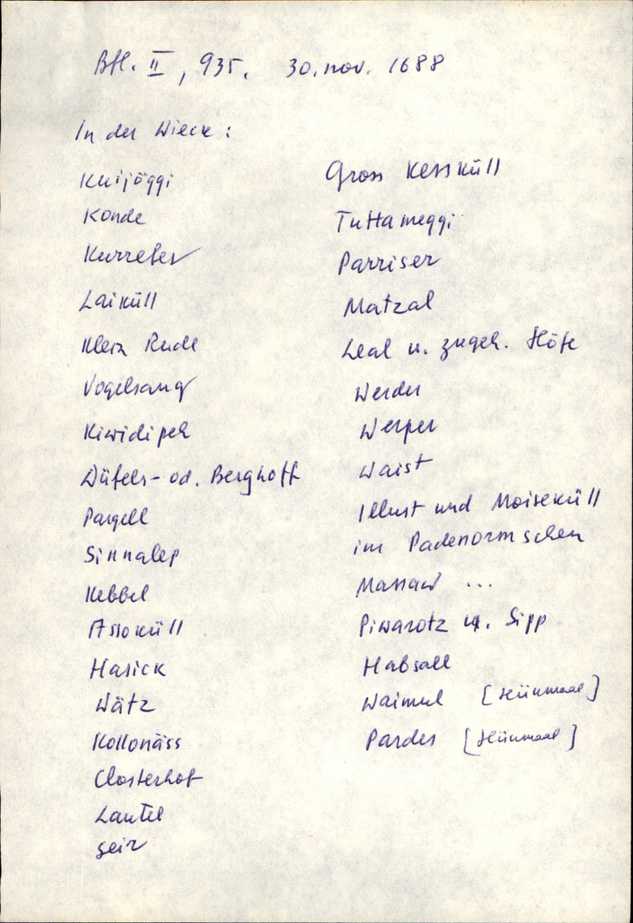 Bfl. II, 935. 30. nov. 1688
In der Wieck:
Kuijöggi
Konde
Kurrefer
Laiküll
Klein Rude
Vogelsang
Kiwidipeh
Düfels- od. Berghoff
Pargell
Sinnalep
Kebbel
Assoküll
Hasick
Wätz
Kokonäss
Closterhof
Lautel
Seir
Gross Kessküll
Tuttameggi
Parriser
Matzal
Leal u. zugeh. Höfe
Werder
Werpel
Waist
Illust und Moiseküll
im Padenormschen
Massau ...
Piwarotz u. Sipp
Habsall
Waimul [Hiiumaal]
Pardes [Hiiumaal]